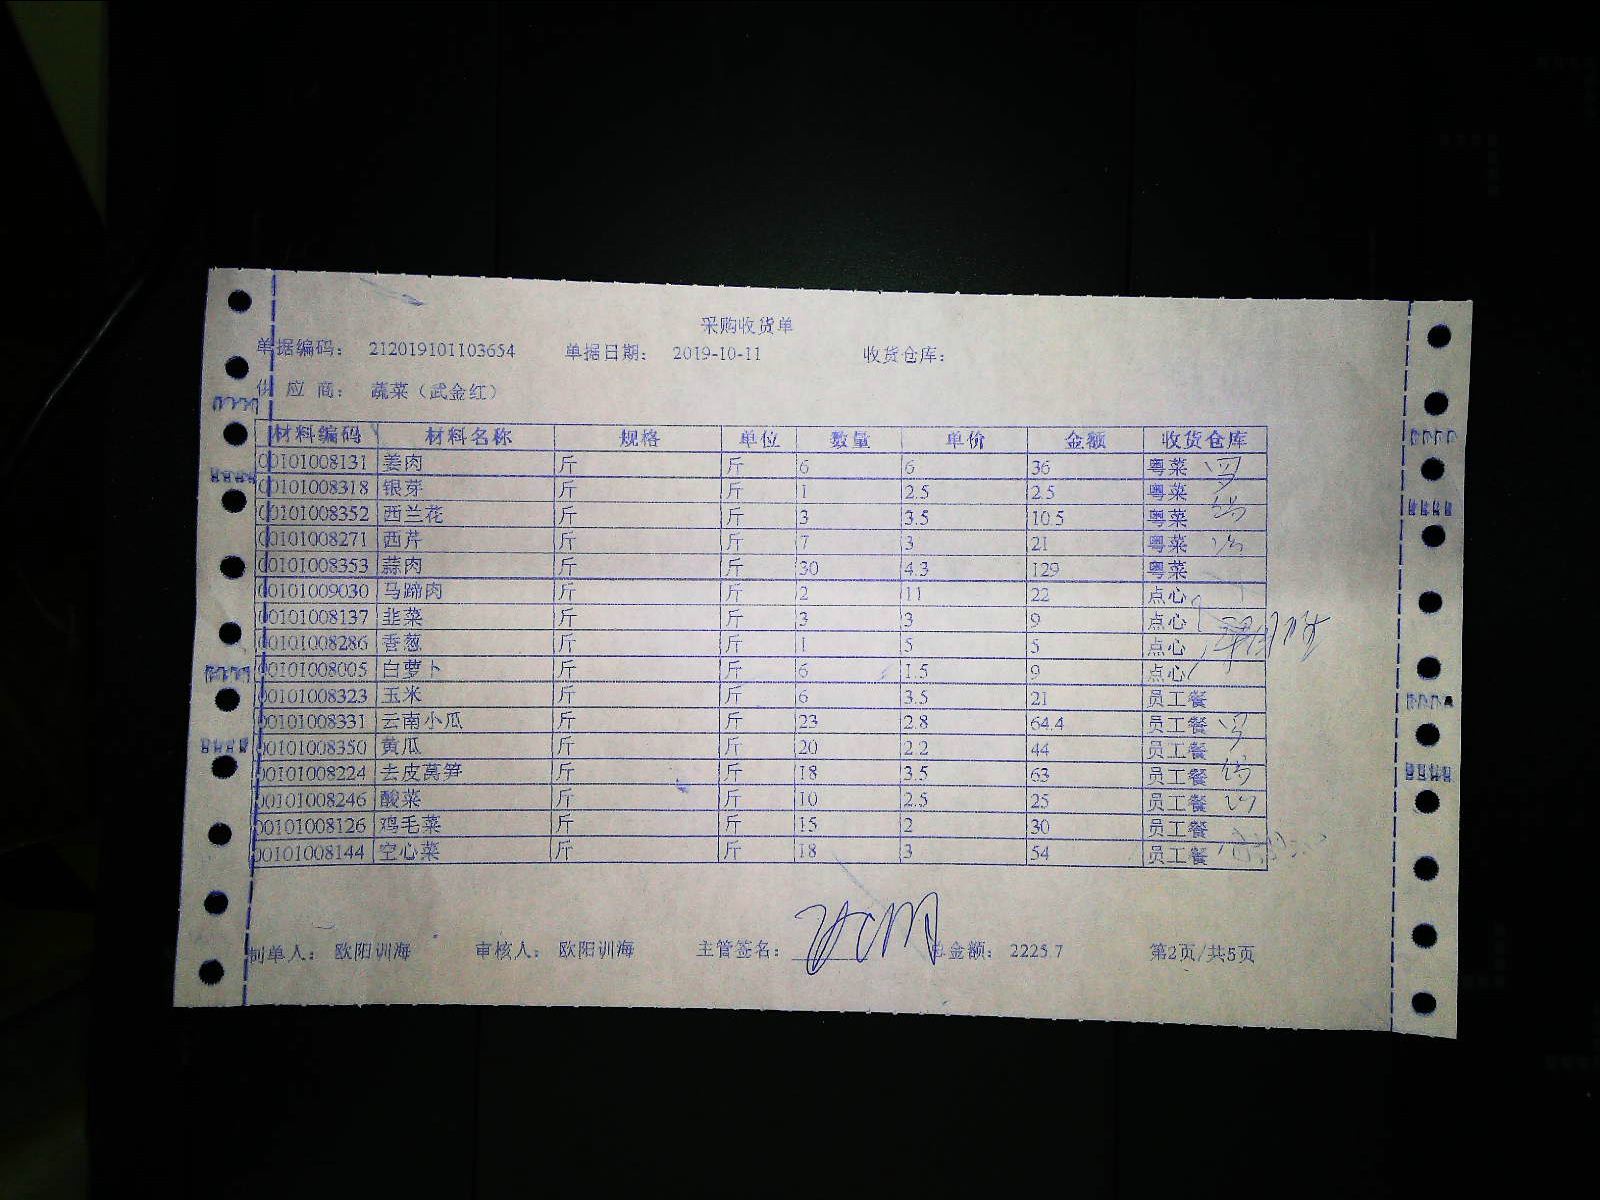 采购收货单
单据编码: 212019101103654 单据日期: 2019-10-11 收货仓库:
供 应 商: 蔬菜（武金红）
材料编码 材料名称 规格 单位 数量 单价 金额 收货仓库
00101008131 姜肉 斤 斤 6 6 36 粤菜
00101008318 银芽 斤 斤 1 2.5 2.5 粤菜
00101008352 西兰花 斤 斤 3 3.5 10.5 粤菜
00101008271 西芹 斤 斤 7 3 21 粤菜
00101008353 蒜肉 斤 斤 30 4.3 129 粤菜
00101009030 马蹄肉 斤 斤 2 11 22 点心
00101008137 韭菜 斤 斤 3 3 9 点心
00101008286 香葱 斤 斤 1 5 5 点心
00101008005 白萝卜 斤 斤 6 1.5 9 点心
00101008323 玉米 斤 斤 6 3.5 21 员工餐
00101008331 云南小瓜 斤 斤 23 2.8 64.4 员工餐
00101008350 黄瓜 斤 斤 20 2.2 44 员工餐
00101008224 去皮莴笋 斤 斤 18 3.5 63 员工餐
00101008246 酸菜 斤 斤 10 2.5 25 员工餐
00101008126 鸡毛菜 斤 斤 15 2 30 员工餐
00101008144 空心菜 斤 斤 18 3 54 员工餐
制单人: 欧阳训海 审核人: 欧阳训海 主管签名: 总金额: 2225.7 第2页/共5页